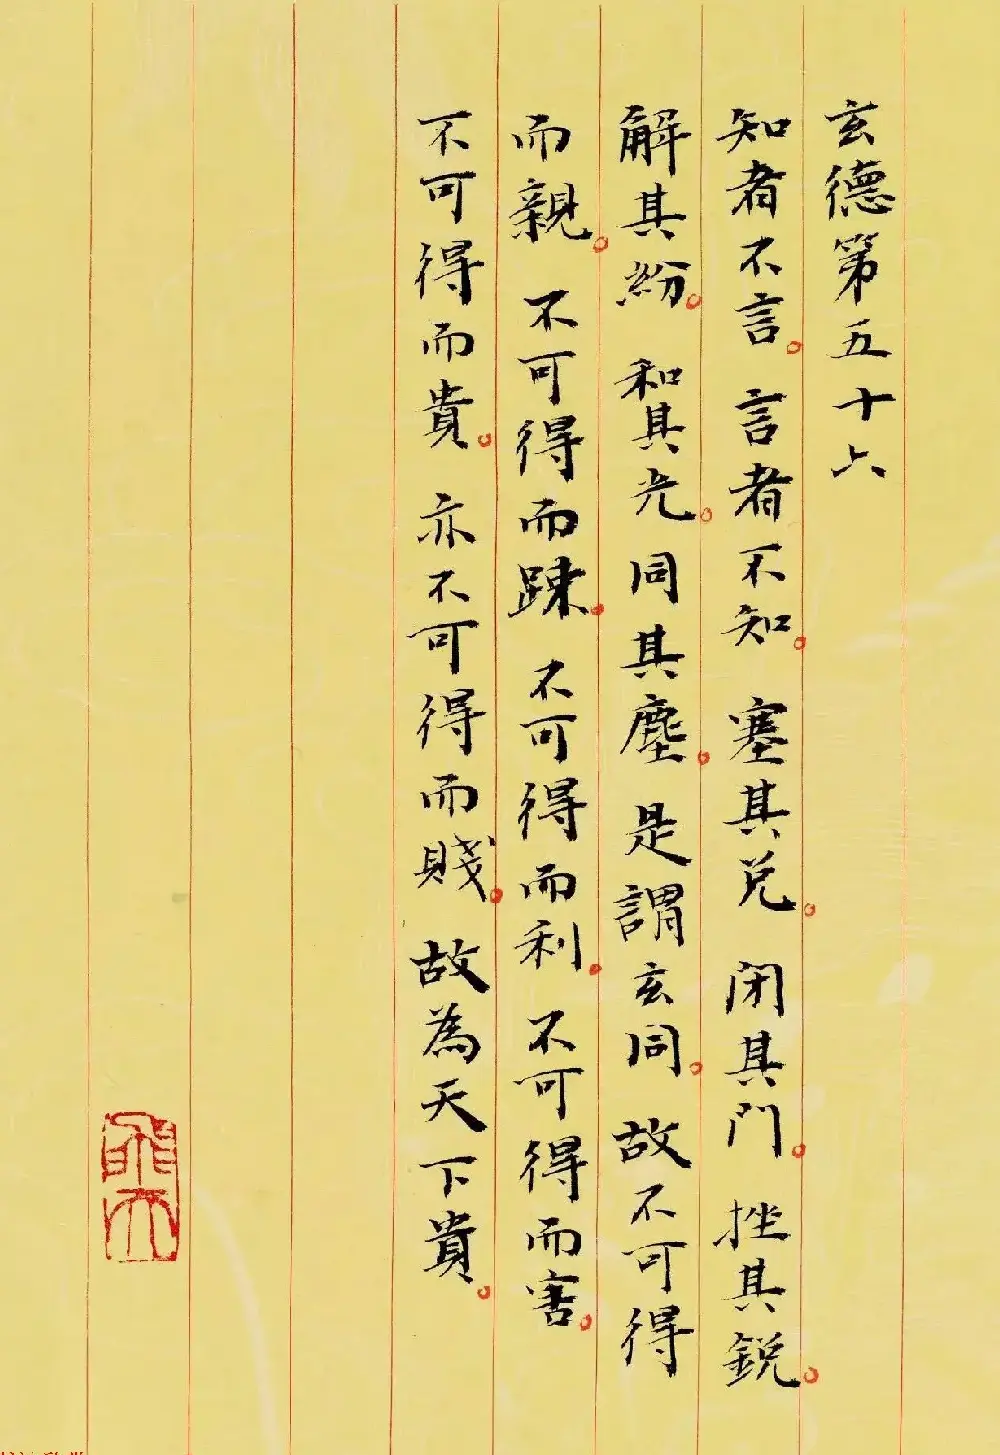 玄德第五十六
知者不言。言者不知。塞其兌。閉其門。挫其銳。
解其紛。和其光。同其塵。是謂玄同。故不可得
而親。不可得而踈。不可得而利。不可得而害。
不可得而貴。亦不可得而賤。故為天下貴。